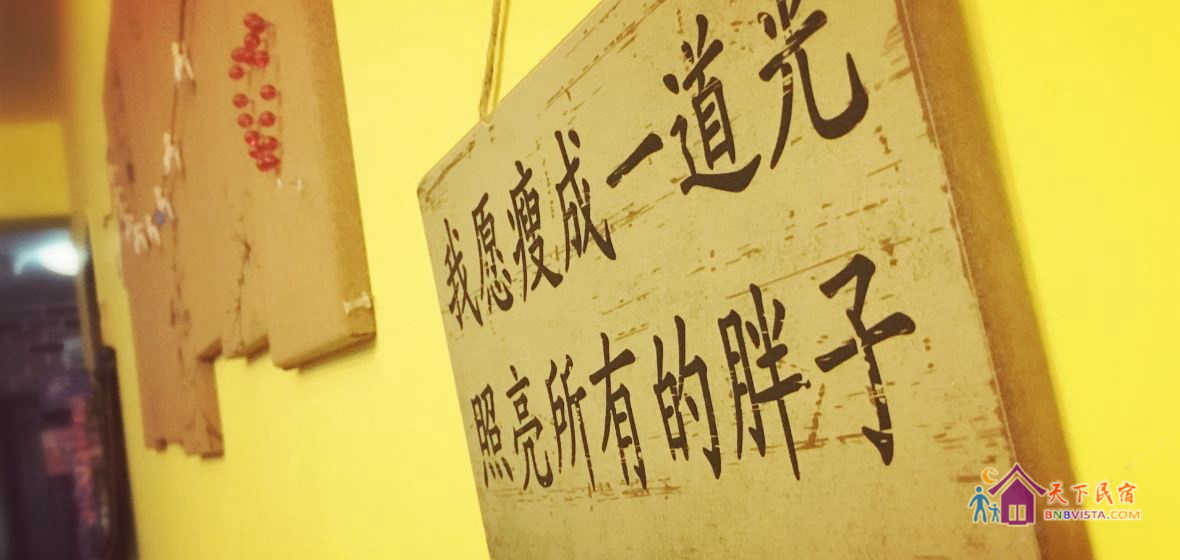 我愿瘦成一道光
照亮所有的胖子
天下民宿
BNBVISTA.COM